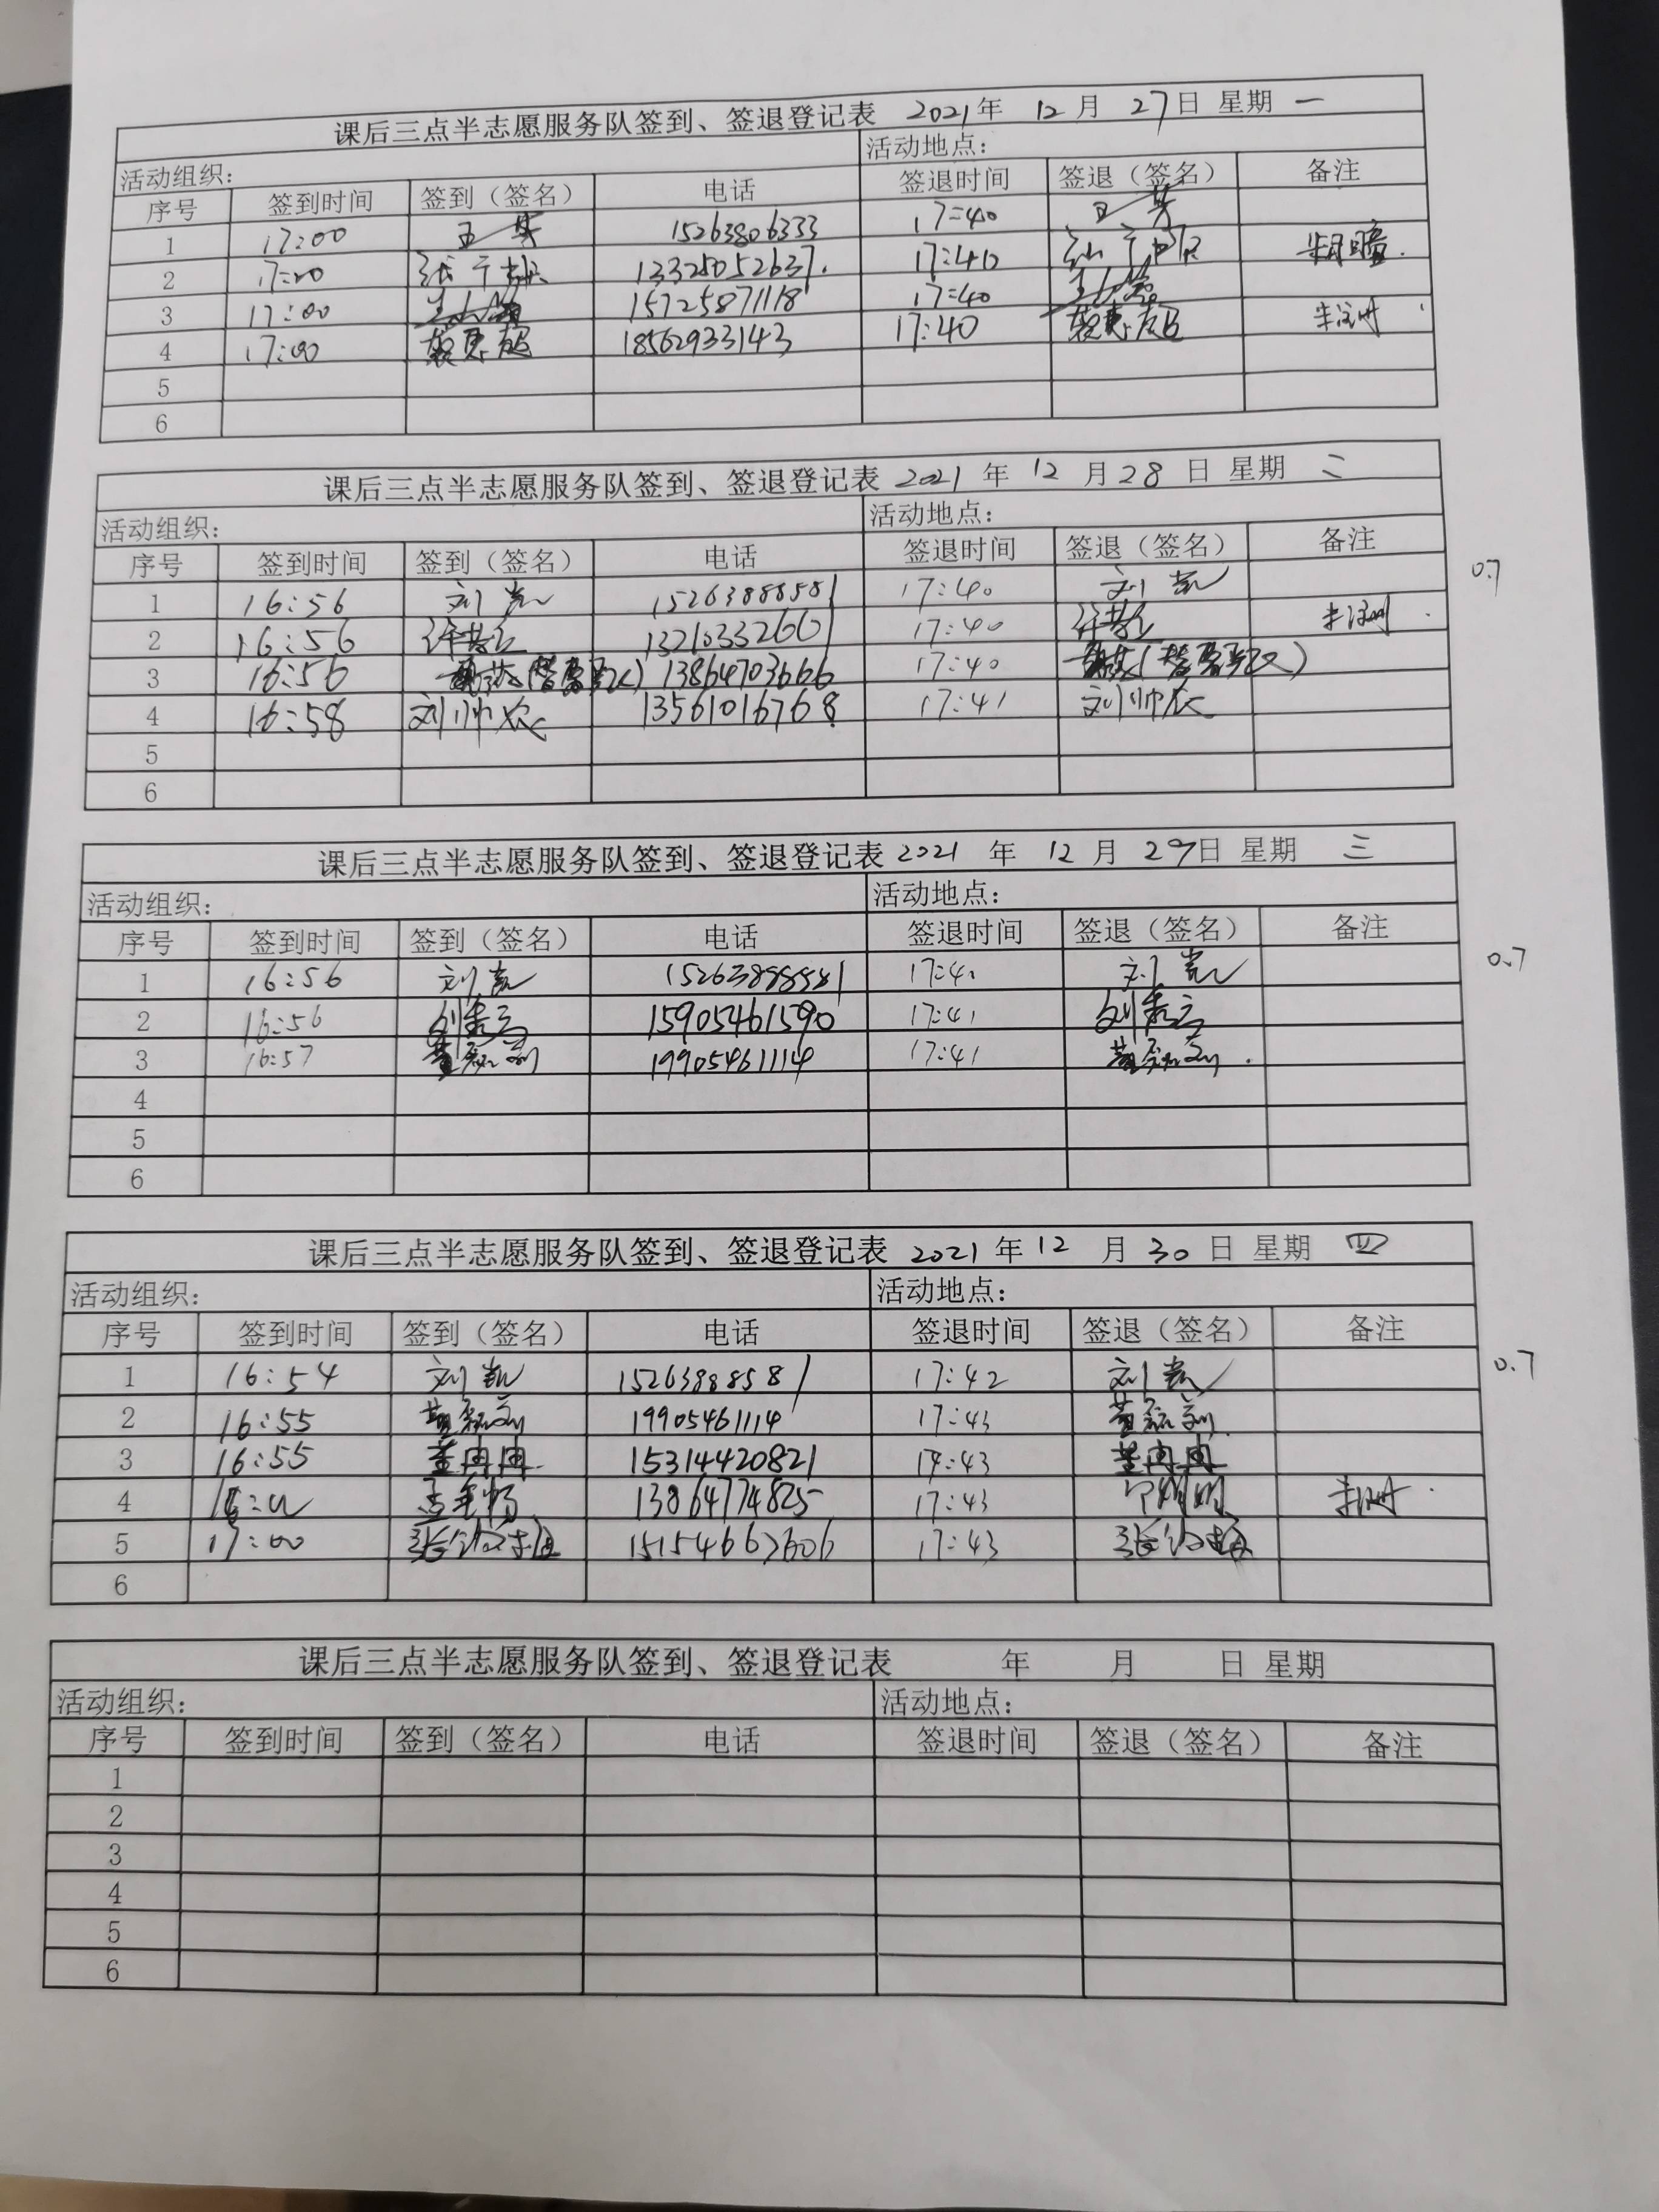 课后三点半志愿服务队签到、签退登记表 2021年 12月 27日 星期 一
活动组织： 活动地点：
序号 签到时间 签到（签名） 电话 签退时间 签退（签名） 备注
1 17:00 15263806333 17:40
2 17:00 13325052637. 17:40
3 17:00 15725871118 17:40
4 17:00 18562933143 17:40
5
6
课后三点半志愿服务队签到、签退登记表 2021 年 12 月 28 日 星期 二
活动组织： 活动地点：
序号 签到时间 签到（签名） 电话 签退时间 签退（签名） 备注
0.7
1 16:56 刘凯 15263888581 17:40 刘凯
2 16:56 13210332661 17:40
3 16:56 13864703666 17:40
4 16:58 刘帅农 13561016768 17:41 刘帅农
5
6
课后三点半志愿服务队签到、签退登记表 2021 年 12 月 29日 星期 三
活动组织： 活动地点：
序号 签到时间 签到（签名） 电话 签退时间 签退（签名） 备注
0.7
1 16:56 刘凯 15263888581 17:41 刘凯
2 16:56 15905461590 17:41
3 16:57 19905461114 17:41
4
5
6
课后三点半志愿服务队签到、签退登记表 2021 年 12 月 30 日 星期 四
活动组织： 活动地点：
序号 签到时间 签到（签名） 电话 签退时间 签退（签名） 备注
0.7
1 16:54 刘凯 15263888581 17:42 刘凯
2 16:55 19905461114 17:43
3 16:55 董冉冉 15314420821 17:43 董冉冉
4 13864774825 17:43
5 17:00 15154667606 17:43
6
课后三点半志愿服务队签到、签退登记表 年 月 日 星期
活动组织： 活动地点：
序号 签到时间 签到（签名） 电话 签退时间 签退（签名） 备注
1
2
3
4
5
6